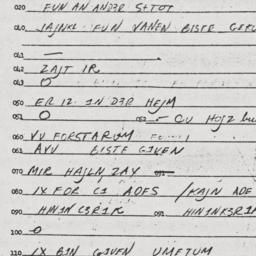 020 FUN AN AND3R STOT
030 JAJNKL FUN VANEN BISTE GEKU
041 —
042 ZAJT IR
043 O
050 ER IZ IN D3R HEJM
051 O 052 — CU HOJZ
060 VU FORSTARUM
061 AVU BISTE GIVEN
070 MIR HAJLN ZAX
080 IX FOR CI AOFS / KAJN AOF
090 HININ C3RIK 091 HININK3RIK
100 O
110 IX BIN GIVEN UMETUM